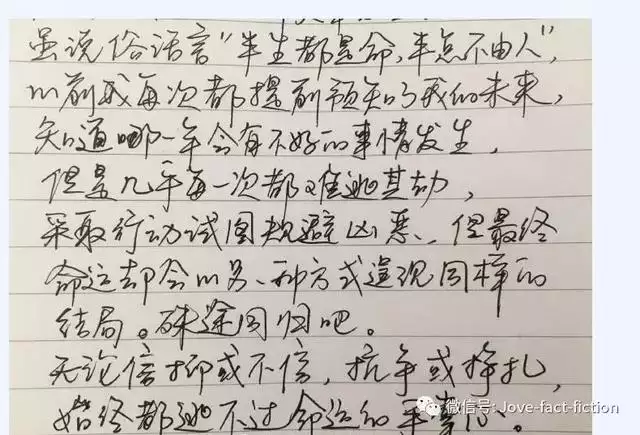 虽说俗话言“半生都是命,半点不由人”,
以前我每次都提前预知了我的未来,
知道哪一年会有不好的事情发生,
但是几乎每一次都难逃其劫,
采取行动试图规避凶恶、但最终
命运却会以另一种方式呈现同样的
结局。殊途同归吧。
无论信抑或不信,抗争或挣扎,
始终都逃不过命运的手掌心。
微信号: Jove-fact-fiction